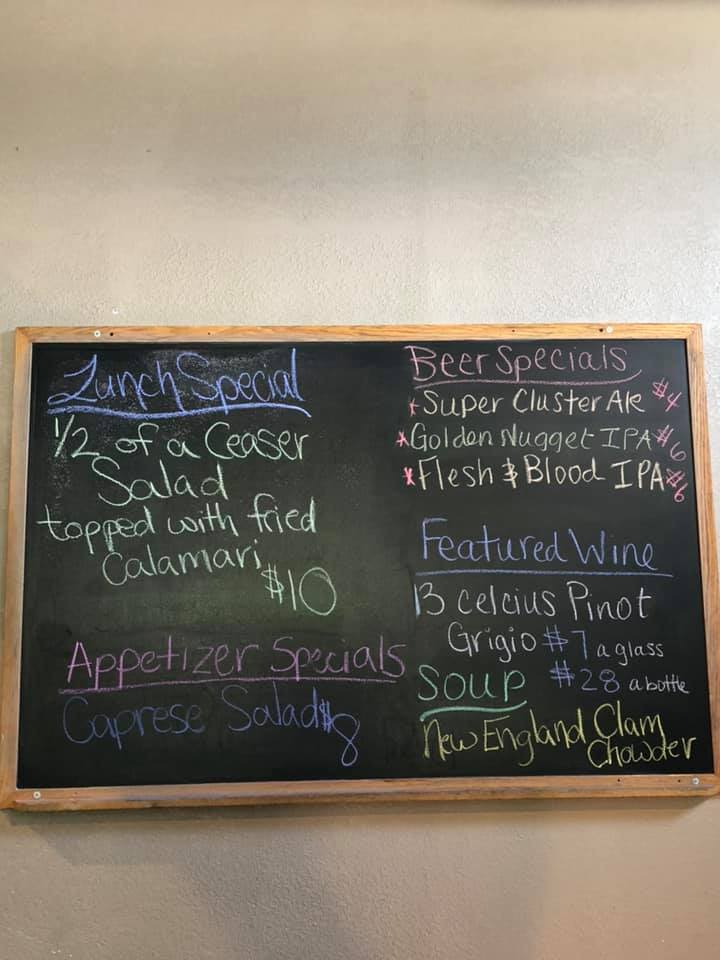 Lunch Special
1/2 of a Ceaser
Salad
topped with fried
Calamari
$10
Appetizer Specials
Caprese Salad $8
Beer Specials
*Super Cluster Ale $4
*Golden Nugget IPA $6
*Flesh & Blood IPA $6
Featured Wine
13 celcius Pinot
Grigio $7 a glass
$28 a bottle
Soup
New England Clam
Chowder